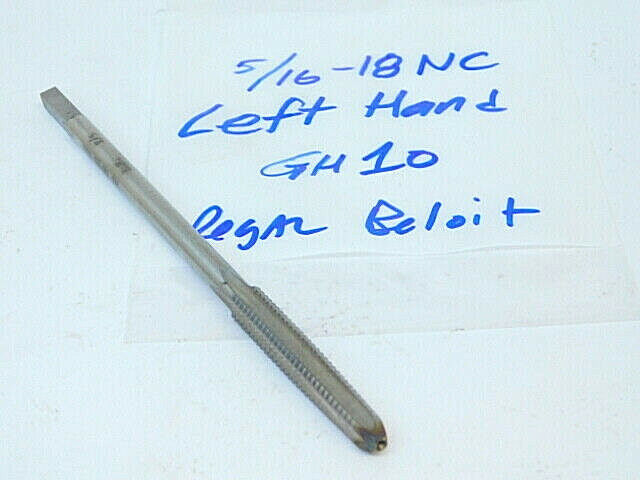 5/16-18 NC
Left Hand
GH 10
Regal Beloit